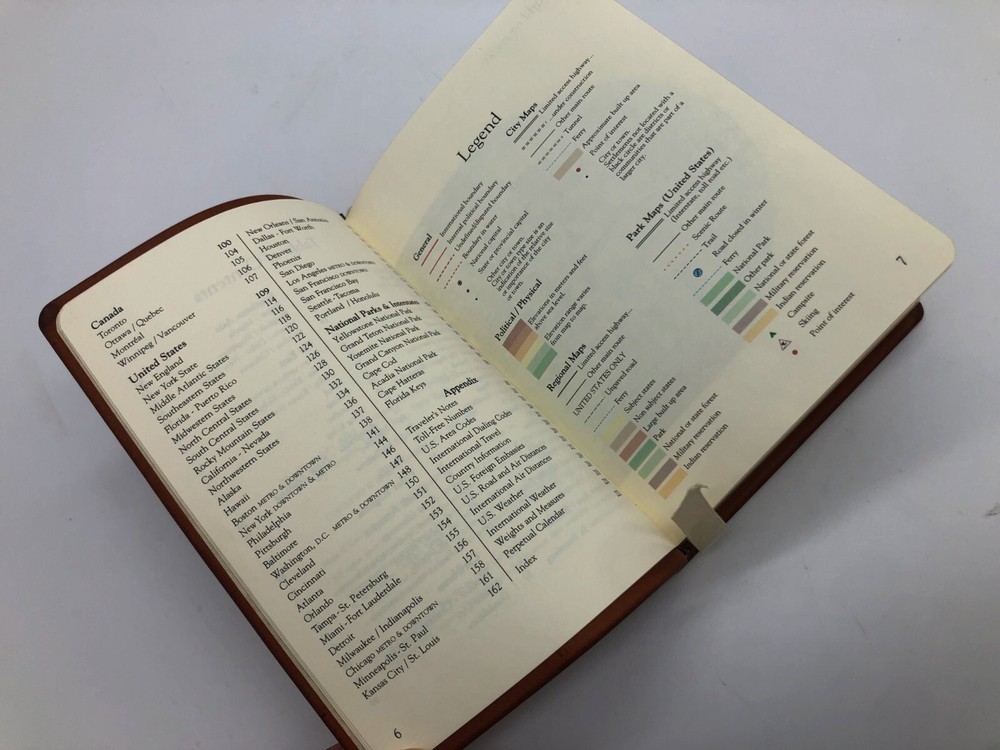 Canada 100
Toronto 104
Ottawa / Quebec 105
Montréal 106
Winnipeg / Vancouver 107
United States 109
New England 114
New York State 116
Middle Atlantic States 118
Southeastern States 120
Florida - Puerto Rico 122
Midwestern States 124
North Central States 126
South Central States 128
Rocky Mountain States 130
California - Nevada 132
Northwestern States 134
Alaska 136
Hawaii 137
Boston METRO & DOWNTOWN 138
New York DOWNTOWN & METRO 141
Philadelphia 144
Pittsburgh 146
Baltimore 147
Washington, D.C. METRO & DOWNTOWN 148
Cleveland 150
Cincinnati 151
Atlanta 152
Orlando 153
Tampa - St. Petersburg 154
Miami - Fort Lauderdale 155
Detroit 156
Milwaukee / Indianapolis 157
Chicago METRO & DOWNTOWN 158
Minneapolis - St. Paul 161
Kansas City / St. Louis 162
New Orleans / San Antonio
Dallas - Fort Worth
Houston
Denver
Phoenix
San Diego
Los Angeles METRO & DOWNTOWN
San Francisco DOWNTOWN
San Francisco Bay
Seattle - Tacoma
Portland / Honolulu
National Parks &
Yellowstone National Park
Grand Teton National Park
Yosemite National Park
Grand Canyon National Park
Cape Cod
Acadia National Park
Cape Hatteras
Florida Keys
Appendix
Traveler's Notes
Toll-Free Numbers
U.S. Area Codes
International Dialing Codes
International Travel
Country Information
U.S. Foreign Embassies
U.S. Road and Air Distances
International Air Distances
U.S. Weather
International Weather
Weights and Measures
Perpetual Calendar
Index
6
Legend
General
International boundary
Internal political boundary
Undefined/disputed boundary
Boundary in water
National capital
State or provincial capital
Other city or town
City or town type size is an
indication of the relative size
or importance of the city
or town.
Political / Physical
Elevations in meters and feet
above sea level.
Elevation range varies
from map to map.
Regional Maps
Limited access highway...
Other main route
UNITED STATES ONLY
Unpaved road
Ferry
Subject states
Non subject states
Large built up area
Park
National or state forest
Military reservation
Indian reservation
City Maps
Limited access highway...
...under construction
Other main route
Tunnel
Ferry
Approximate built up area
Point of interest
City or town.
Settlements not located with a
black circle are districts or
communities that are part of a
larger city.
Park Maps (United States)
Limited access highway
(Interstate, toll road etc.)
Other main route
Scenic Route
Trail
Road closed in winter
Ferry
National Park
Other park
National or state forest
Military reservation
Indian reservation
Campsite
Skiing
Point of interest
7